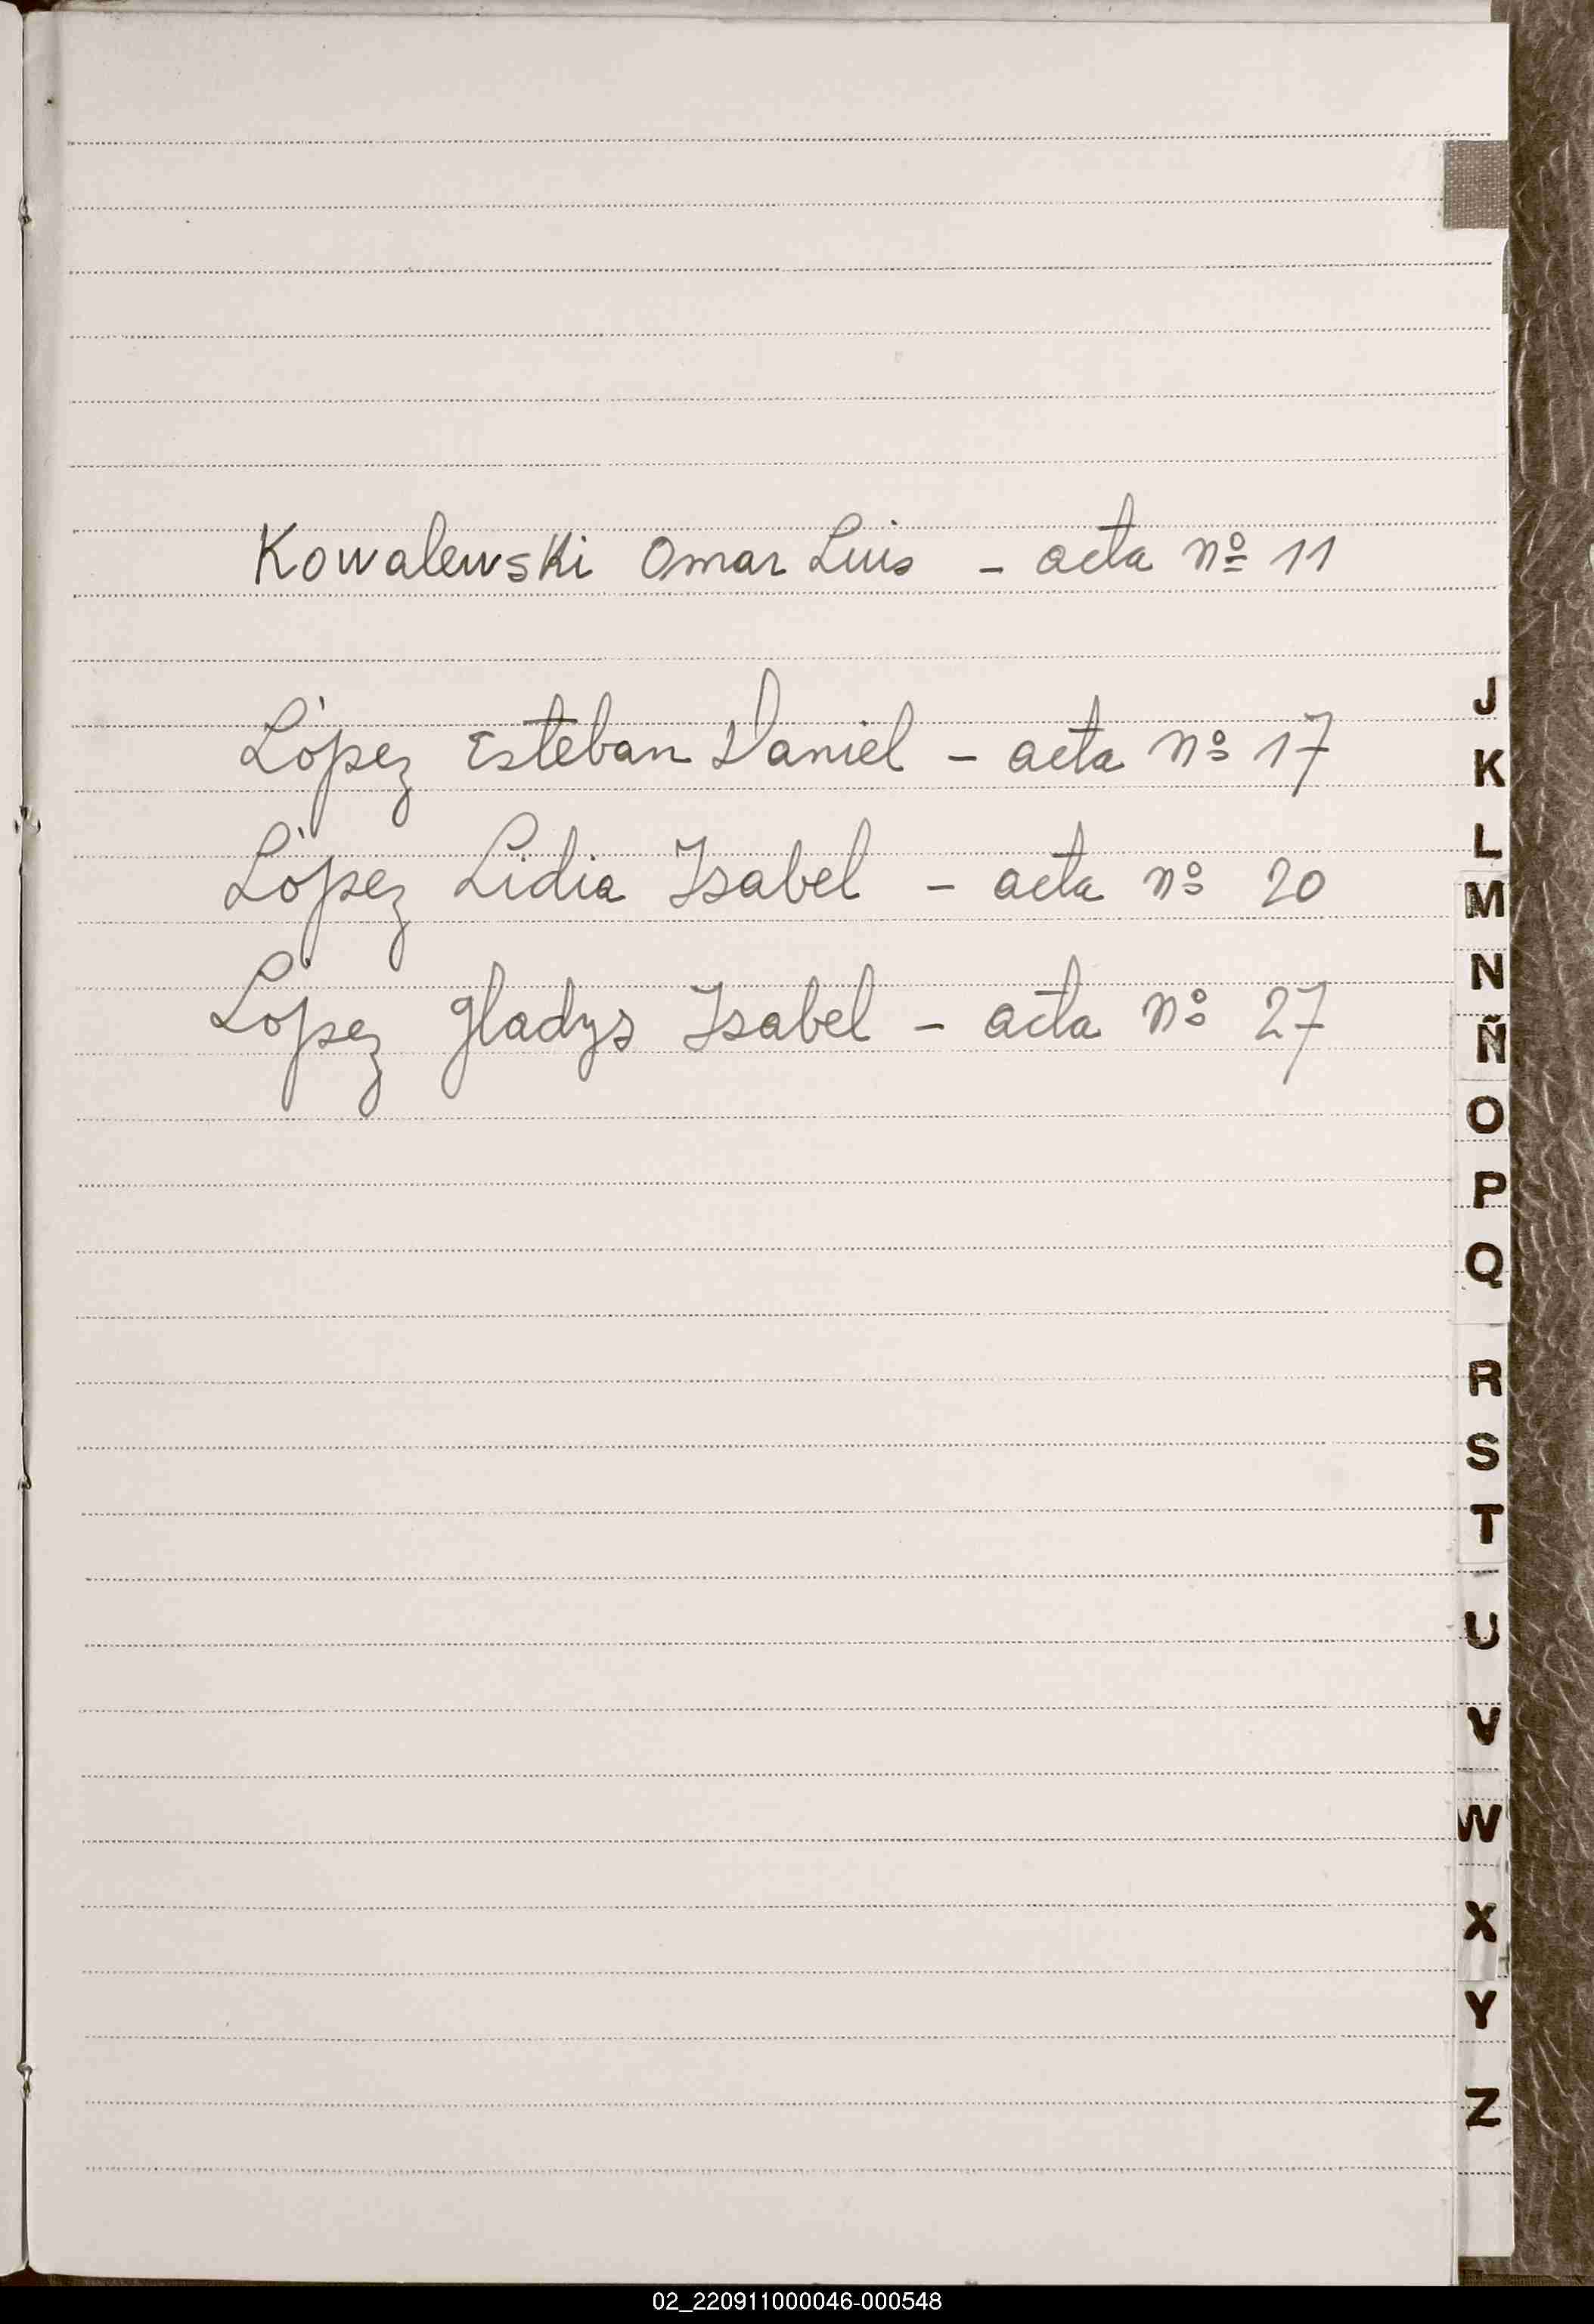 Kowalewski Omar Luis - acta nº 11
López Esteban Daniel - acta nº 17
López Lidia Isabel - acta nº 20
López Gladys Isabel - acta nº 27
J
K
L
M
N
Ñ
O
P
Q
R
S
T
U
V
W
X
Y
Z
02_220911000046-000548